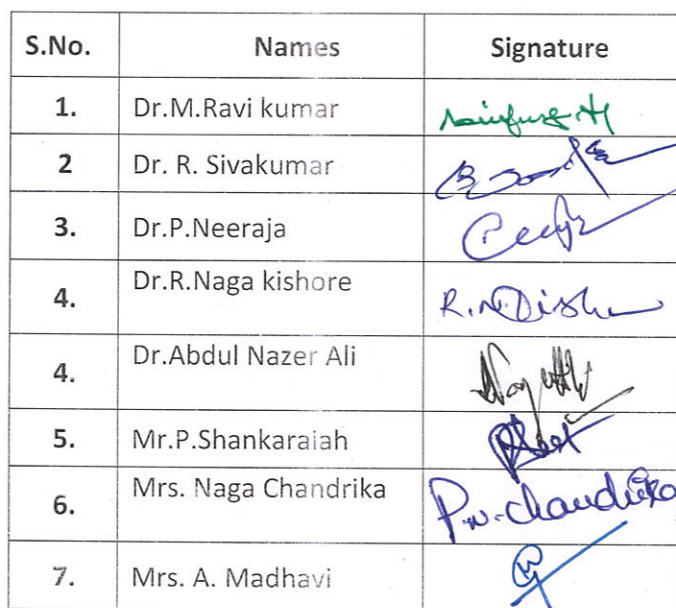 S.No. Names Signature
1. Dr.M.Ravi kumar
2 Dr. R. Sivakumar
3. Dr.P.Neeraja
4. Dr.R.Naga kishore
4. Dr.Abdul Nazer Ali
5. Mr.P.Shankaraiah
6. Mrs. Naga Chandrika P.N.Chandrika
7. Mrs. A. Madhavi